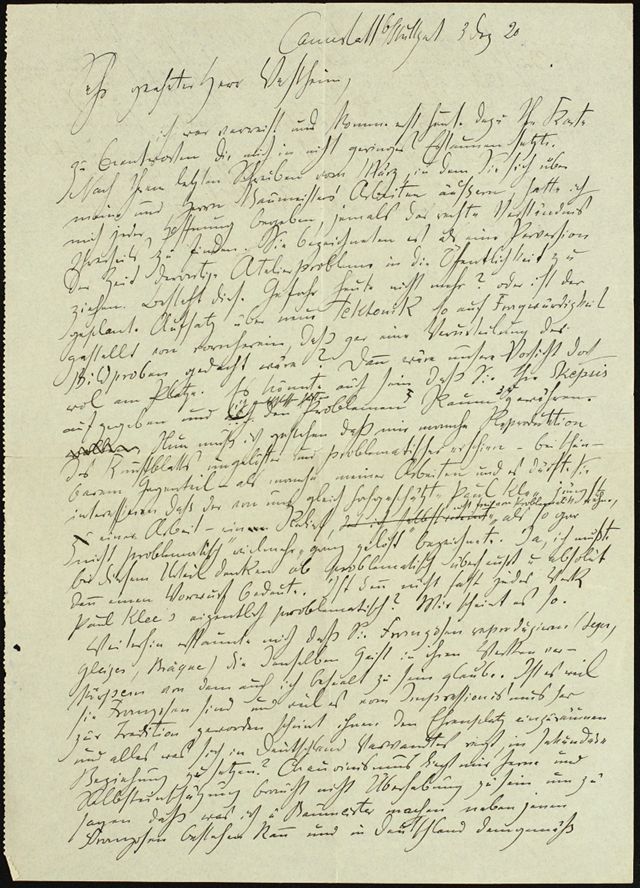 Cannstatt b/Stuttgart 3 Dez 20
Sehr geehrter Herr Westheim,
ich war verreist und komme erst heute dazu Ihre Karte
zu beantworten die mich in nicht geringes Erstaunen setzte.
Nach Ihrem letzten Schreiben vom März, in dem Sie sich über
meine und Herrn Baumeisters Arbeiten äussern, hatte ich
mich jeder Hoffnung begeben, jemals das rechte Verständnis
Ihrerseits zu finden. Sie bezeichneten es als eine Perversion
der Zeit derartige Atelierprobleme in die Öffentlichkeit zu
ziehen. Besteht diese Gefahr heute nicht mehr? oder ist der
geplante Aufsatz über neue Tektonik so auf Fragwürdigkeit
gestellt von vornherein, daß gar eine Verurteilung der
Bildproben gedacht wäre? Dann wäre unsere Vorsicht dort
wol am Platze. Es könnte auch sein daß Sie Ihre Skepsis
aufgegeben und den Problemen Raum gewähren
Nun muß ich gestehen daß mir manche Reproduktion
des Kunstblatts ungelöster und problematischer erschien – bei
barem Gegenteil – als manche meiner Arbeiten und es dürfte Sie
interessieren daß der von uns gleich hochgeschätzte Paul Klee jüngst
einer Arbeit – einem Relief, als so gar
"nicht problematisch" vielmehr "ganz gelöst" bezeichnet. Ja, ich müßte
bei diesem Urteil denken ob problematisch überhaupt u absolut
denn einen Vorwurf bedeute. Ist denn nicht fast jedes Werk
Paul Klee's eigentlich problematisch? Mir scheint es so.
Weiterhin erstaunte mich daß Sie Franzosen reproduzieren (Léger,
Gleizes, Braque) die denselben Geist in ihren Werken ver-
körpern von dem auch ich beseelt zu sein glaube. Ist es weil
sie Franzosen sind und weil es vom Impressionismus her
zur Tradition geworden scheint ihnen den Ehrenplatz einzuräumen
und alles was sich in Deutschland Verwandtes regt in sekundäre
Beziehung zu setzen? Chauvinismus liegt mir ferne und
Selbstunterschätzung braucht nicht Überhebung zu sein um zu
sagen daß was ich u Baumeister machen neben jenen
Franzosen bestehen kann und in Deutschland demgemäß